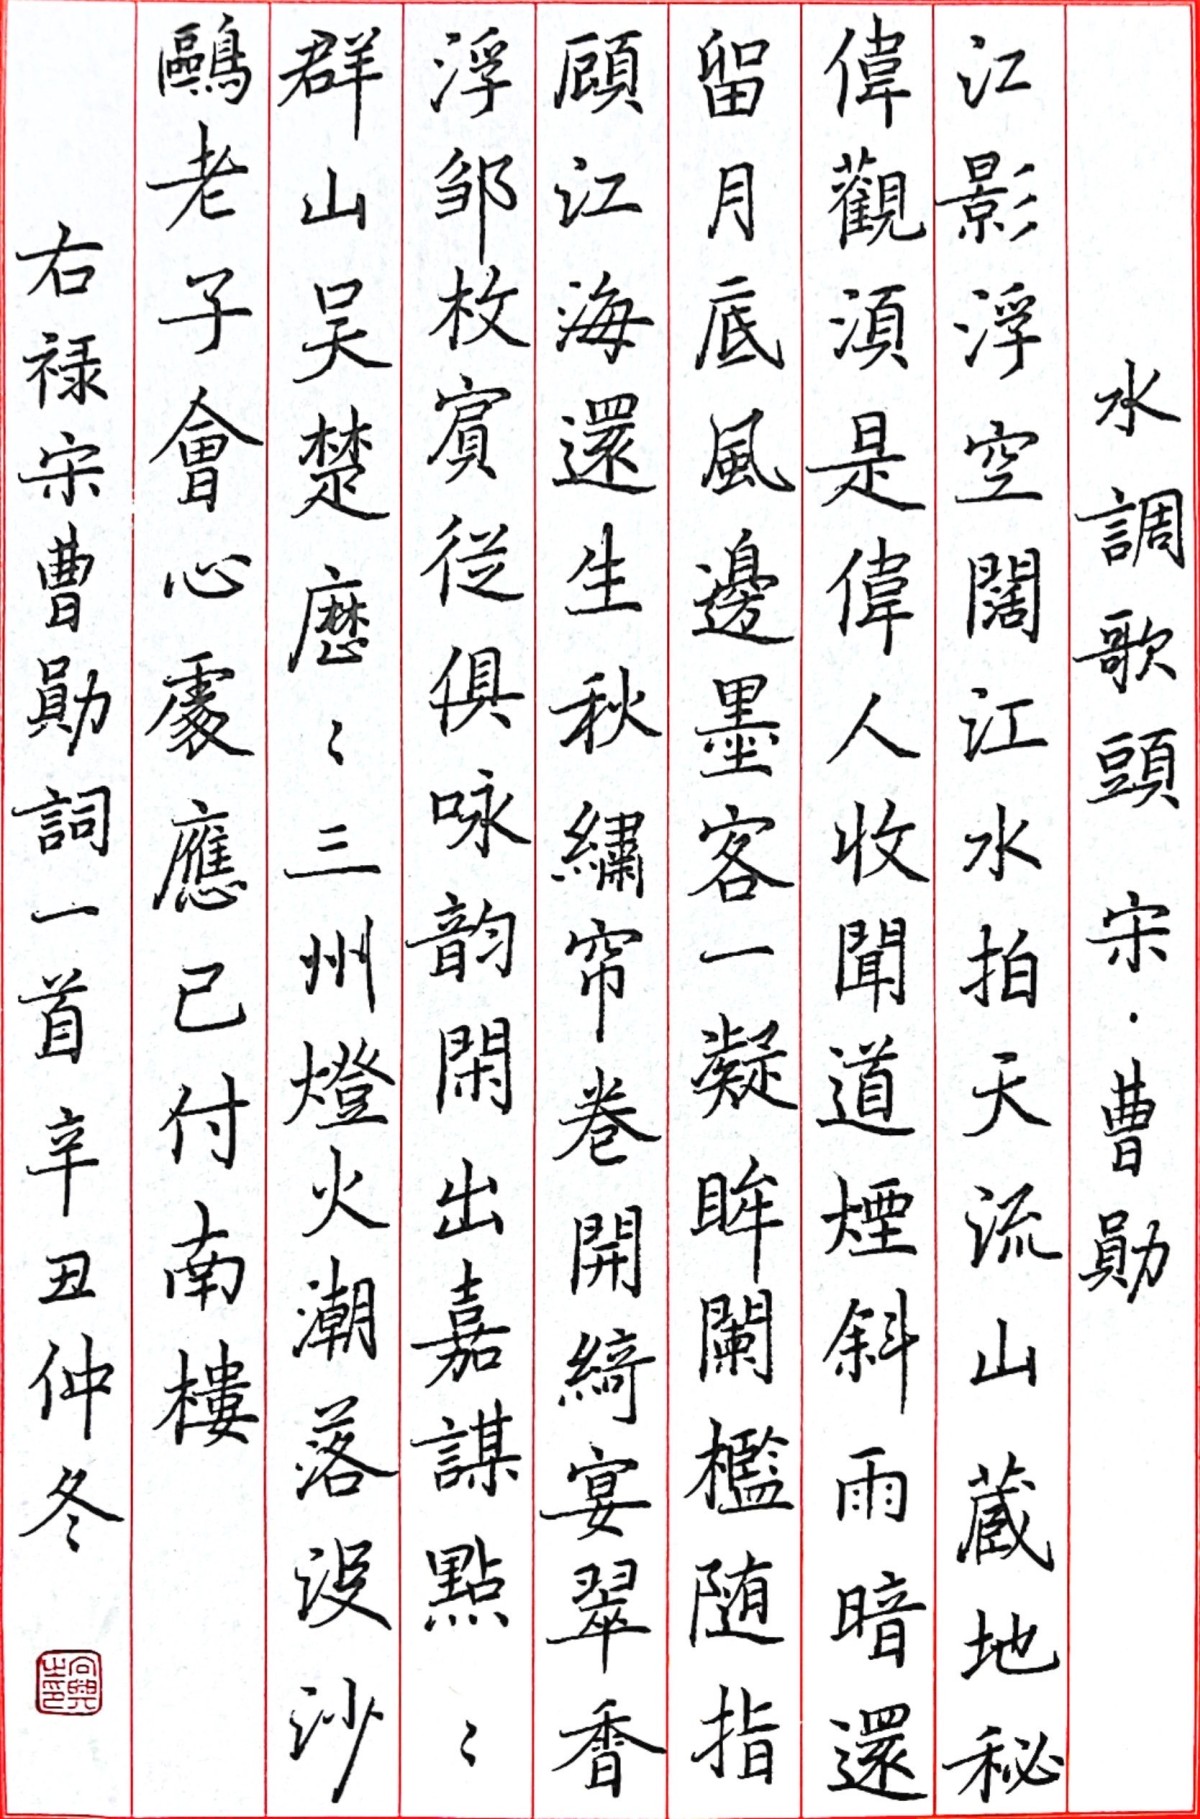 水調歌頭 宋·曹勛
江影浮空闊江水拍天流山蔵地秘
偉觀湏是偉人收聞道煙斜雨暗還
留月底風邊墨客一凝眸闌檻随指
顧江海還生秋繡帘卷開綺宴翠香
浮邹枚賓従俱咏韵閑出嘉謀點〻
群山吴楚歷〻三州燈火潮落没沙
鷗老子會心處應已付南樓
右禄宋曹勛詞一首辛丑仲冬